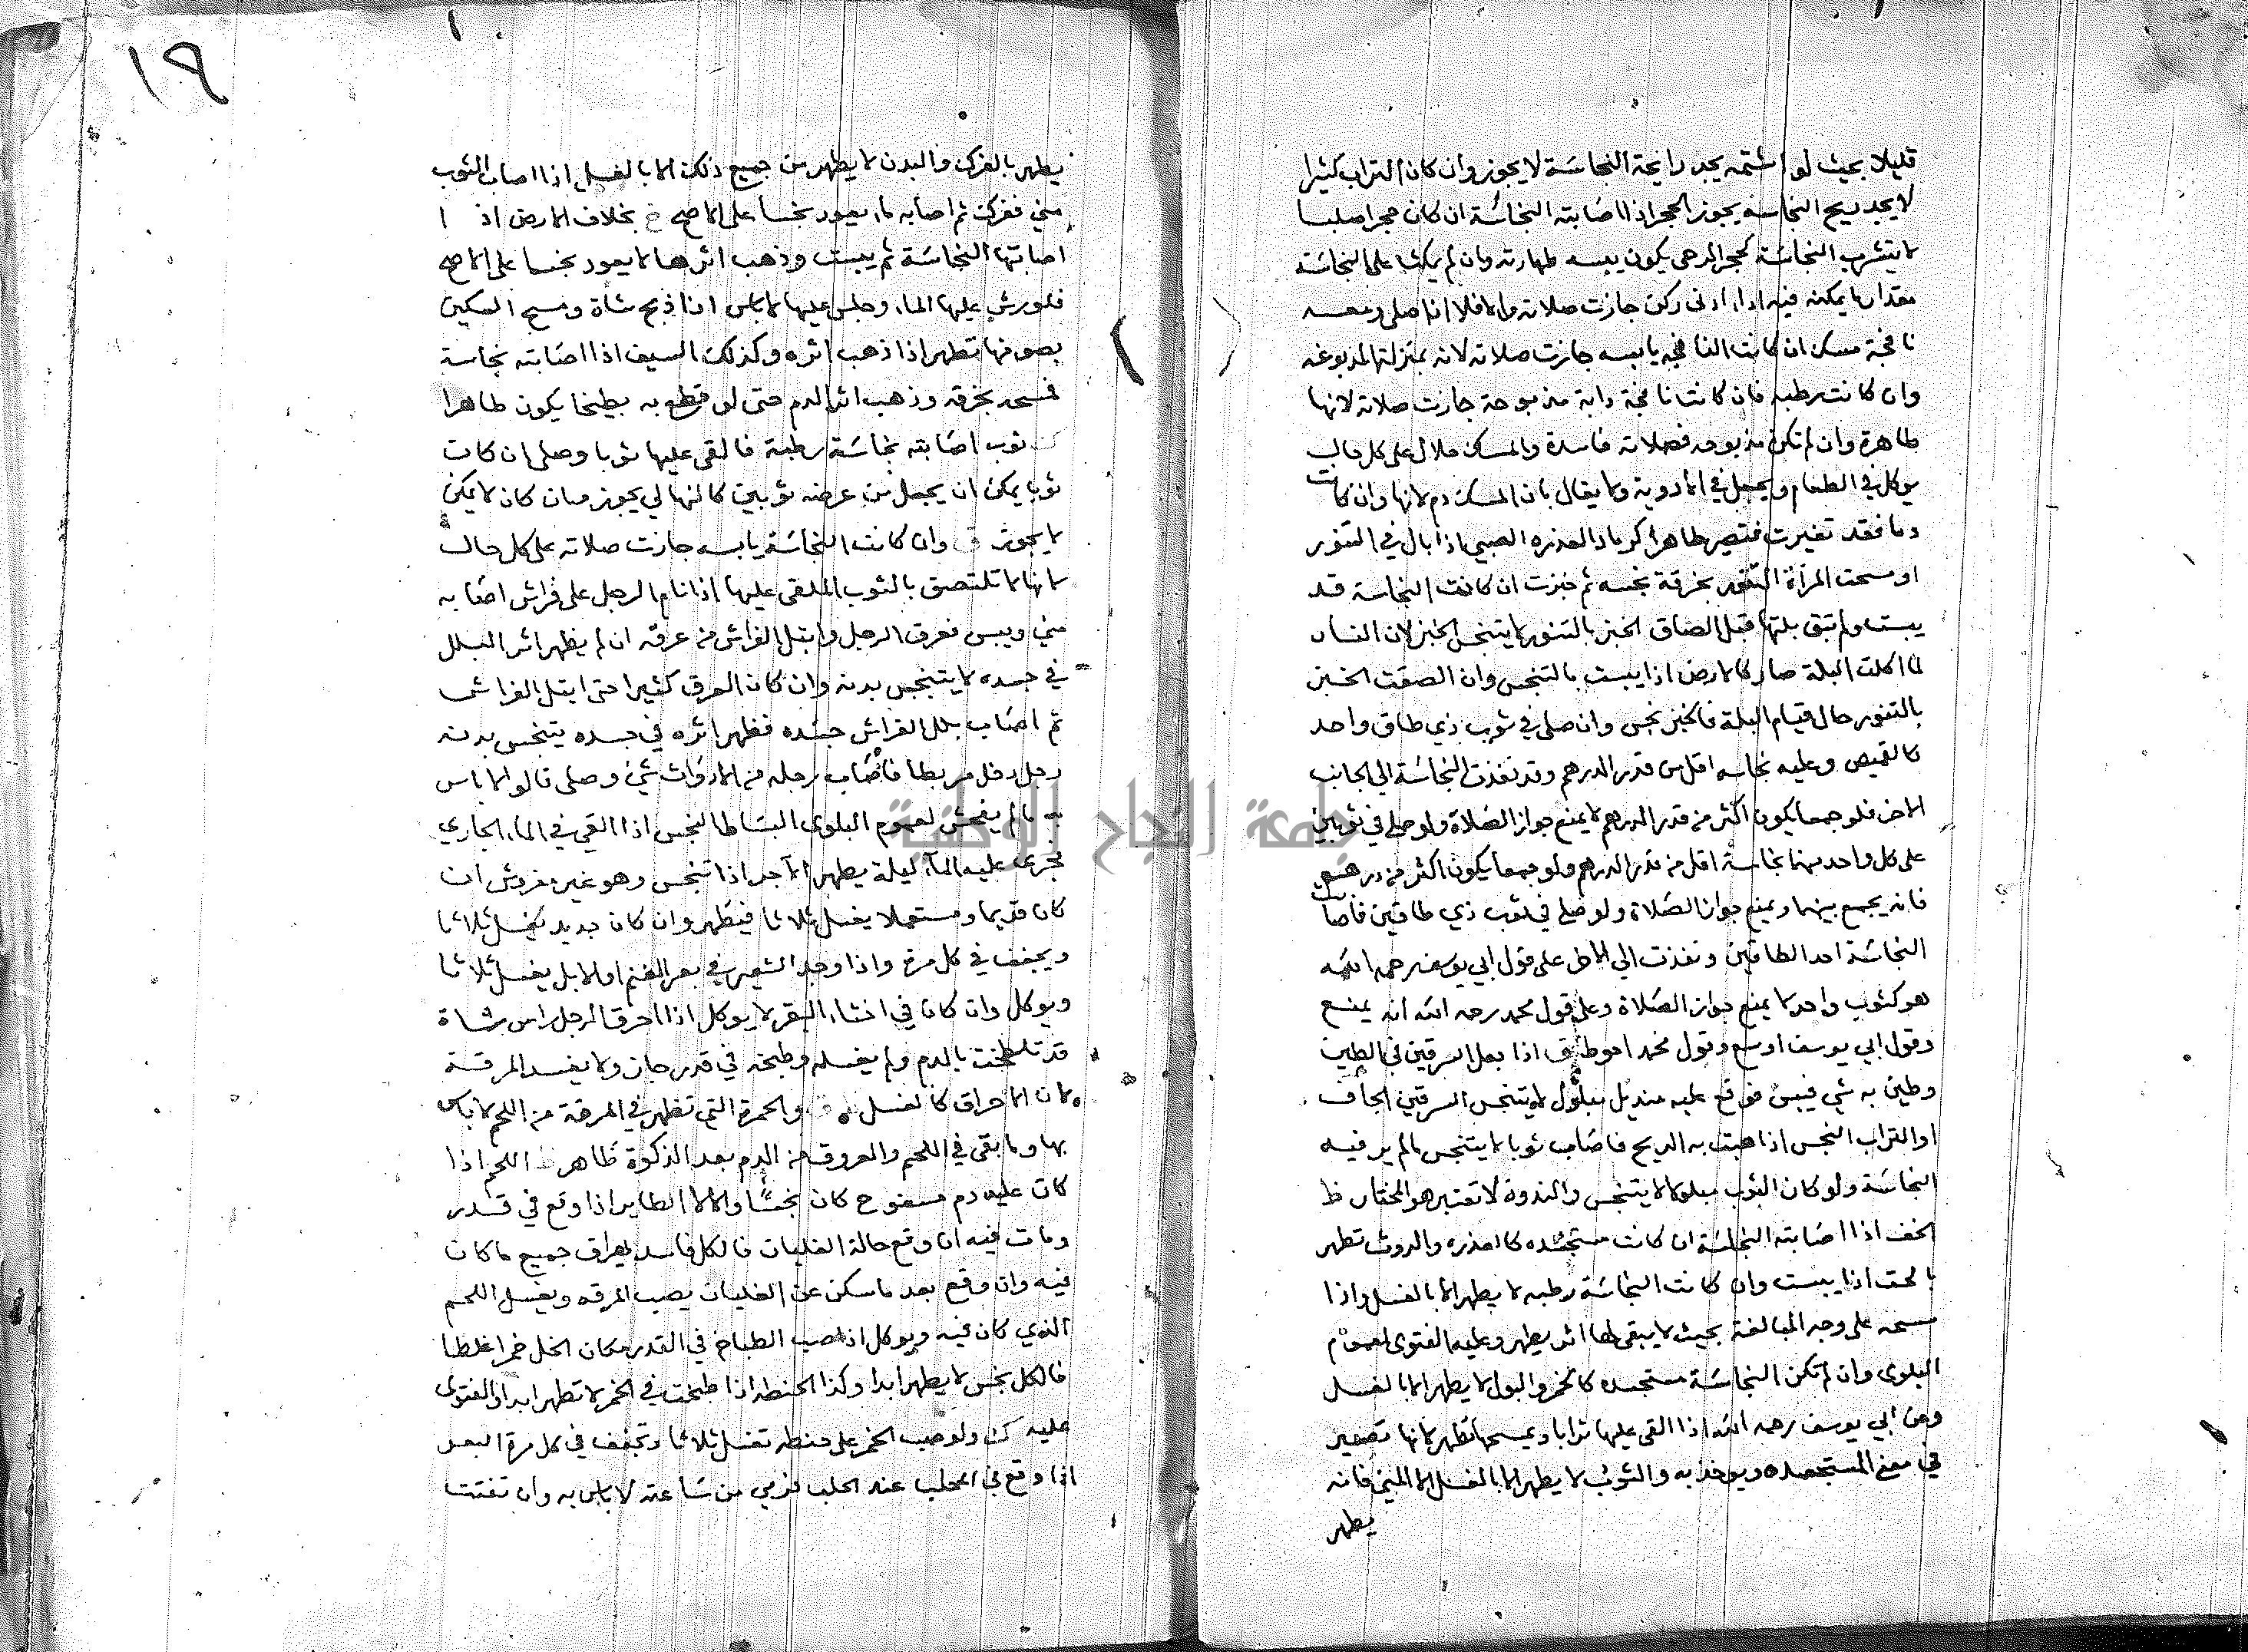 قليلا بحيث لو اشتمه يجد رايحة النجاسة لا يجوز وان كان التراب كثيرا
لا يجد ريح النجاسة يجوز الحجر اذا اصابته النجاسة ان كان حجرا صلبا
لا يتشرب النجاسة كحجر الرحى يكون يبسه طهارته وان لم يكث على النجاسة
مقدار ما يمكنه فيه اداء ادنى ركن جازت صلاته والا فلا اذا صلى ومعه
نافجة مسك ان كانت النافجه يابسه جازت صلاته لانه بمنزلة المدبوغه
وان كانت رطبه فان كانت نافجة دابة مذبوحة جازت صلاته لانها
طاهرة وان لم تكن مذبوحه فصلاته فاسدة والمسك حلال على كل حال
يوكل في الطعام ويجعل في الادوية ولا يقال بان المسك دم لانها وان كانت
دما فقد تغيرت فتصير طاهرا كرماد العذره الصبي اذا بال في التنور
او مسحت المرأة التنور بخرقة نجسه ثم خبزت ان كانت النجاسة قد
يبست ولم تبق بلتها قبل الصاق الخبز بالتنور لا يتنجس الخبز لان النار
لما اكلت البلة صار كالارض اذا يبست بالتنجس وان الصقت الخبز
بالتنور حال قيام البلة فالخبز نجس وان صلى في ثوب ذي طاق واحد
كالقميص وعليه نجاسه اقل من قدر الدرهم وقد نفذت النجاسة الي الجانب
الاخر فلو جمعا يكون اكثر من قدر الدرهم لا يمنع جواز الصلاة ولو صلى في ثوبين
على كل واحد منهما نجاسة اقل من قدر الدرهم ولو جمعا يكون اكثر من درهم
فانه يجمع بينهما ويمنع جواز الصلاة ولو صلى في ثوب ذي طاقين فاصابت
النجاسة احد الطاقين ونفذت الي الاخر على قول ابي يوسف رحمه الله
هو كثوب واحد لا يمنع جواز الصلاة وعلى قول محمد رحمه الله انه يمنع
وقول ابي يوسف اوسع وقول محمد احوط ق اذا جعل السرقين في الطين
وطين به شي فيبس فوقع عليه منديل مبلول لا يتنجس السرقين الجاف
او التراب النجس اذا هبت به الريح فاصاب ثوبا لا يتنجس مالم ير فيه
النجاسة ولو كان الثوب مبلولا لا يتنجس والندوة لا تعتبر هو المختار ظ
الخف اذا اصابته النجاسة ان كانت مستجسده كالعذره والروث تطهر
بالحت اذا يبست وان كانت النجاسة رطبه لا يطهر الا بالغسل واذا
مسحه على وجه المبالغة بحيث لا يبقى لها اثر يطهر وعليه الفتوى لعموم
البلوى وان لم تكن النجاسة مستجسده كالخمر والبول لا يطهر الا بالغسل
وعن ابي يوسف رحمه الله اذا القى عليها ترابا ويمسحها تطهر لانها تصير
في معنى المستجسده ويوخذ به والثوب لا يطهر الا بالغسل الا المني فانه
يطهر
١٩
يطهر بالفرك والبدن لا يطهر من جميع ذلك الا بالغسل اذا اصاب الثوب
مني ففرك ثم اصابه ماء يعود نجسا على الاصح خ بخلاف الارض اذ ا
اصابتها النجاسة ثم يبست وذهب اثرها لا يعود نجسا على الاصح
فلو رش عليها الماء وجلس عليها لاباس اذا ذبح شاة ومسح السكين
بصوفها تطهر اذا ذهب اثره وكذلك السيف اذا اصابته نجاسة
فمسحه بخرقه وذهب اثر الدم حتى لو قطع به بطيخا يكون طاهرا
ك ثوب اصابته نجاسة رطبة فالقى عليها ثوبا وصلى ان كان
ثوبا يمكن ان يجعل من عرضه ثوبين كالنهالي يجوز وان كان لا يمكن
لا يجوز ق وان كانت النجاسة يابسه جازت صلاته على كل حال
لانها لا تلتصق بالثوب الملقى عليها اذا نام الرجل على فراش اصابه
مني ويبس فعرق الرجل وابتل الفراش من عرقه ان لم يظهر اثر البلل
في جسده لا يتنجس بدنه وان كان العرق كثيرا حتى ابتل الفراش
ثم اصاب بلل الفراش جسده فظهر اثره في جسده يتنجس بدنه
رجل دخل مربطا فاصاب رجله من الارواث شي وصلى قالوا لاباس
به مالم يفحش لعموم البلوى البساط النجس اذا القي في الماء الجاري
فجرى عليه الماء ليلة يطهر الآجر اذا تنجس وهو غير مفروش ان
كان قديما ومستعملا يغسل ثلاثا فيطهر وان كان جديد يغسل ثلاثا
ويجفف في كل مرة واذا وجد الشعير في بعر الغنم او الابل يغسل ثلاثا
ويوكل وان كان في اخثاء البقر لا يوكل اذا احرق الرجل راس شاة
قد تلطخت بالدم ولم يغسله وطبخه في قدر جاز ولا يفسد المرقة
لان الاحراق كالغسل ق والحمرة التي تظهر في المرقة من اللحم لاباس
بها وما بقى في اللحم والعروق من الدم بعد الذكوة طاهر ط اللحم اذا
كان عليه دم مسفوح كان نجسا والا لا الطاير اذا وقع في قدر
ومات فيه ان وقع حالة الغليان فالكل فاسد يهراق جميع ما كان
فيه وان وقع بعد ما سكن عن الغليان يصب المرقه ويغسل اللحم
الذي كان فيه ويوكل اذا صب الطباخ في القدر مكان الخل خمرا غلطا
فالكل نجس لا يطهر ابدا وكذا الحنطه اذا طبخت في الخمر لا تطهر ابدا والفتوى
عليه ك ولو صب الخمر على حنطه تغسل ثلاثا وتجفف في كل مرة البعر
اذا وقع في المحلب عند الحلب فرمي من ساعته لاباس به وان تفتت
جامعة النجاح الوطنية